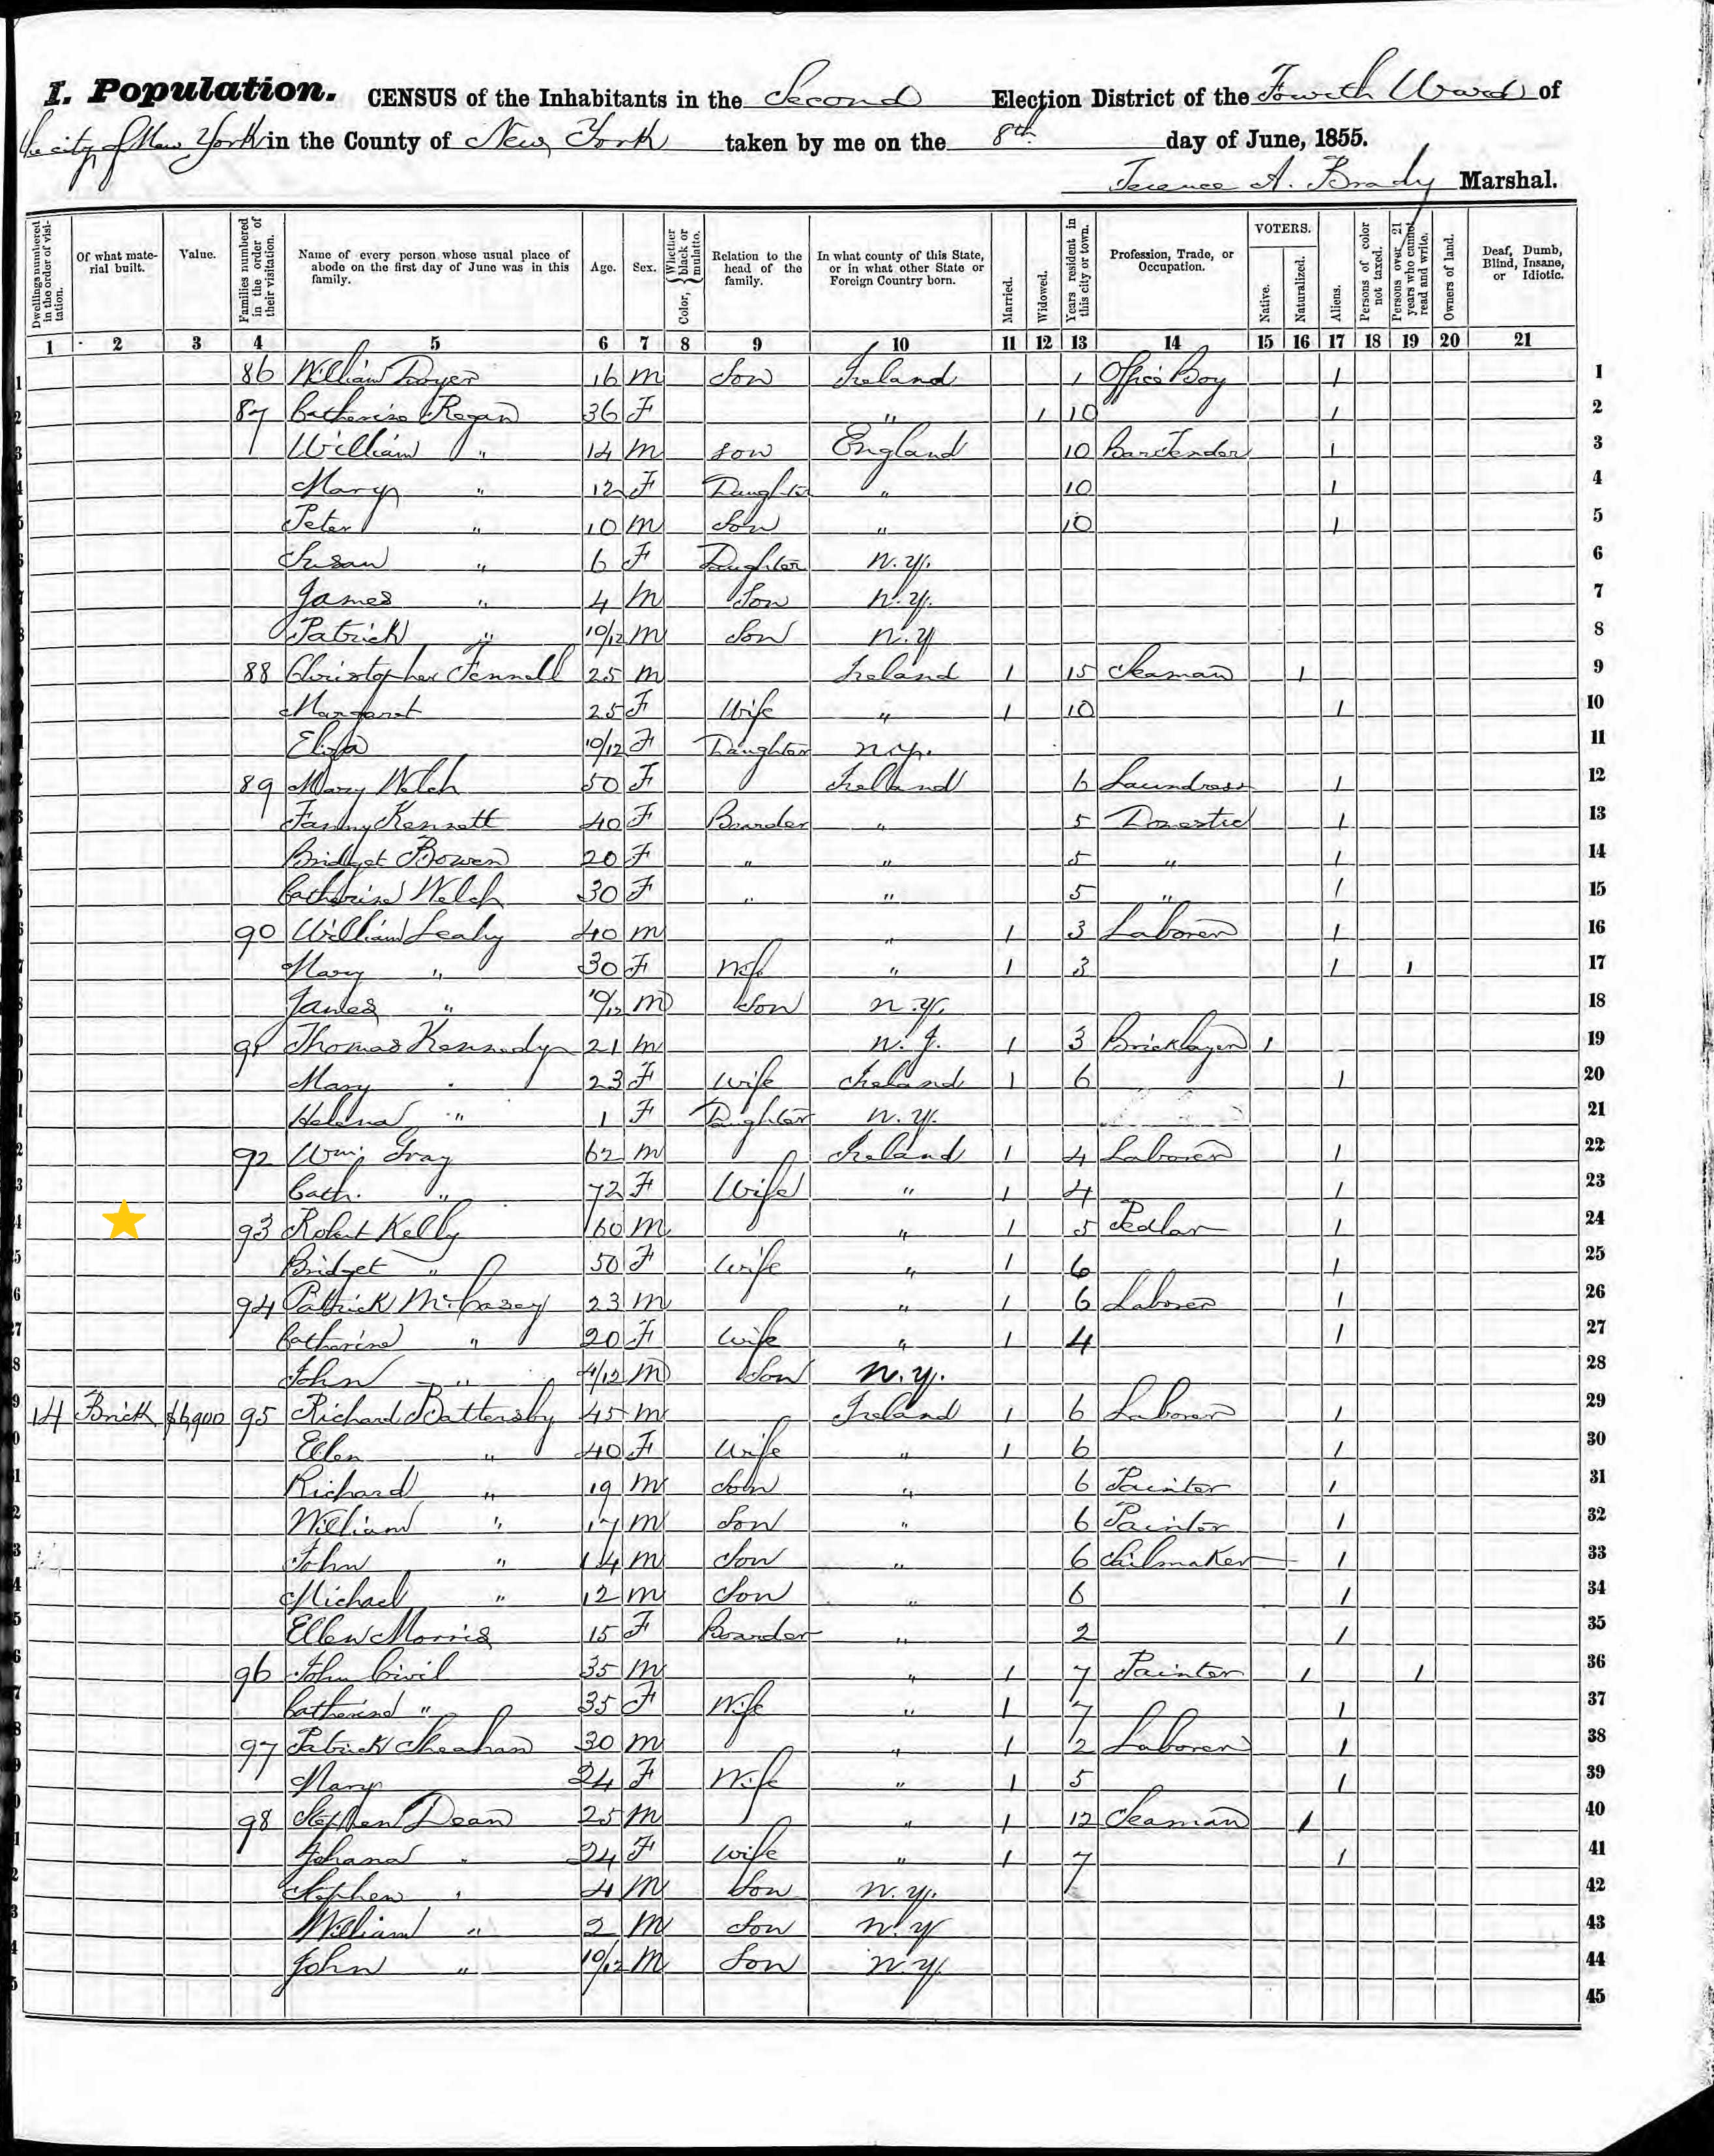 I. Population. CENSUS of the Inhabitants in the Second Election District of the Fourth Ward of
the city of New York in the County of New York taken by me on the 8th day of June, 1855.
Terence A. Brady Marshal.
Dwellings numbered in the order of visitation. Of what material built. Value. Families numbered in the order of their visitation. Name of every person whose usual place of abode on the first day of June was in this family. Age. Sex. Color, Whether black or mulatto. Relation to the head of the family. In what county of this State, or in what other State or Foreign Country born. Married. Widowed. Years resident in this city or town. Profession, Trade, or Occupation. VOTERS. Native. Naturalized. Aliens. Persons of color not taxed. Persons over 21 years who cannot read and write. Owners of land. Deaf, Dumb, Blind, Insane, or Idiotic.
1 2 3 4 5 6 7 8 9 10 11 12 13 14 15 16 17 18 19 20 21
86 William Dwyer 16 m Son Ireland 1 Office Boy 1 1
87 Catherine Regan 36 F " 1 10 1 2
William " 14 m son England 10 BarTender 1 3
Mary " 12 F Daughter " 10 1 4
Peter " 10 m Son " 10 1 5
Susan " 6 F Daughter n.y. 6
James " 4 m Son n.y. 7
Patrick " 10/12 m Son n.y 8
88 Christopher Fennell 25 m Ireland 1 15 Seaman 1 9
Margaret 25 F Wife " 1 10 1 10
Eliza 10/12 F Daughter n.y. 11
89 Mary Welch 50 F Ireland 6 Laundress 1 12
Fanny Kennett 40 F Boarder " 5 Domestic 1 13
Bridget Bowen 20 F " " 5 " 1 14
Catherine Welch 30 F " " 5 " 1 15
90 William Leahy 40 m " 1 3 Laborer 1 16
Mary " 30 F Wife " 1 3 1 1 17
James " 10/12 m Son n.y. 18
91 Thomas Kennedy 21 m n.J. 1 3 Bricklayer 1 19
Mary " 23 F Wife Ireland 1 6 1 20
Helena " 1 F Daughter n.y. 21
92 Wm Gray 62 m Ireland 1 4 Laborer 1 22
Cath. " 72 F Wife " 1 4 1 23
93 Robert Kelly 60 m " 1 5 Pedlar 1 24
Bridget " 50 F Wife " 1 6 1 25
94 Patrick McCasey 23 m " 1 6 Laborer 1 26
Catherine " 20 F Wife " 1 4 1 27
John " 4/12 m Son N.y. 28
14 Brick $6,900 95 Richard Battersby 45 m Ireland 1 6 Laborer 1 29
Ellen " 40 F Wife " 1 6 1 30
Richard " 19 m Son " 6 Painter 1 31
William " 17 m Son " 6 Painter 1 32
John " 14 m Son " 6 Sailmaker 1 33
Michael " 12 m Son " 6 1 34
Ellen Morris 15 F Boarder " 2 1 35
96 John Civil 35 m " 1 7 Painter 1 1 36
Catherine " 35 F Wife " 1 7 1 37
97 Patrick Sheahan 30 m " 1 1/2 Laborer 1 38
Mary 24 F Wife " 1 5 1 39
98 Stephen Dean 25 m " 1 12 Seaman 1 40
Johana " 24 F Wife " 1 7 1 41
Stephen " 4 m Son n.y. 42
William " 2 m Son n.y 43
John " 10/12 m Son n.y. 44
45